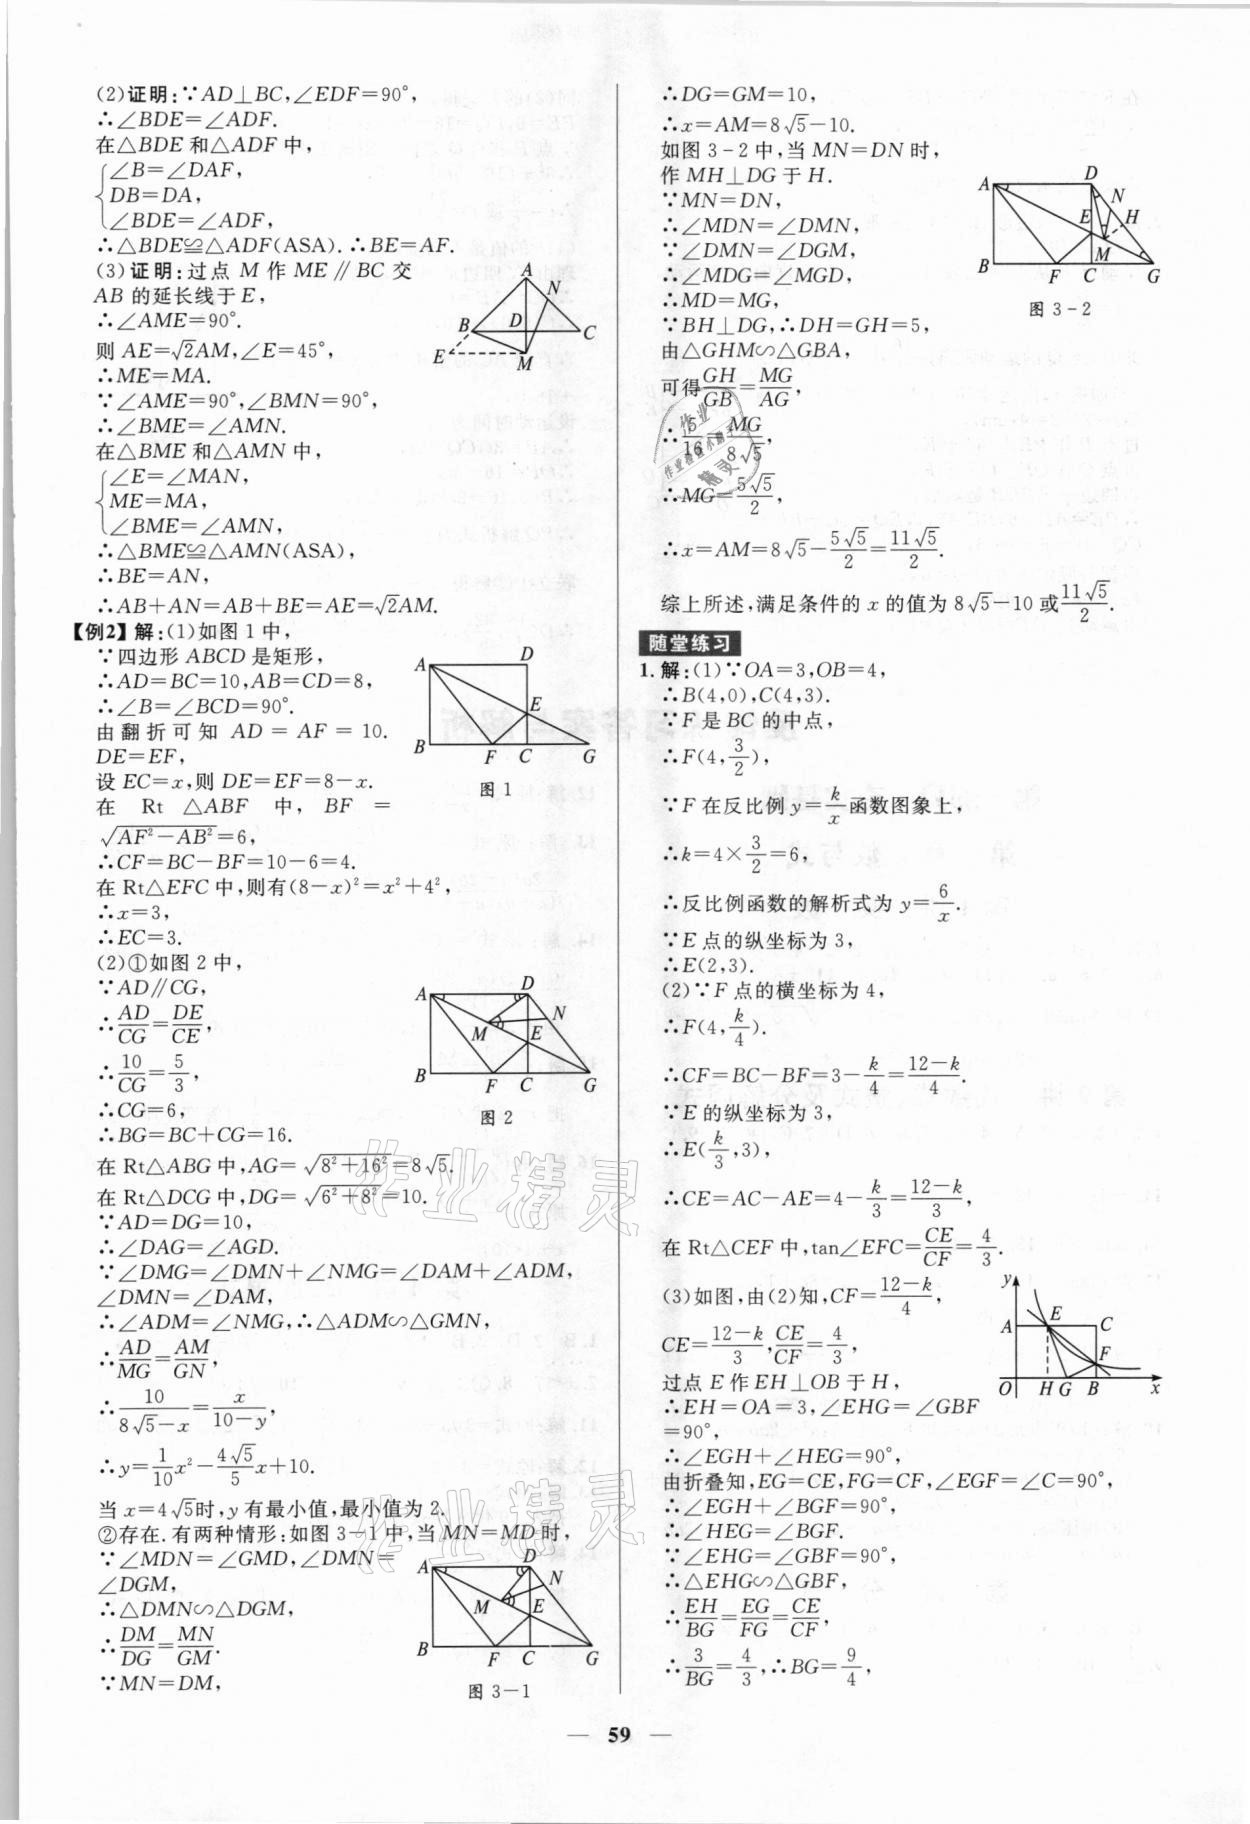 (2)证明:∵AD⊥BC,∠EDF=90°,
∴∠BDE=∠ADF.
在△BDE和△ADF中,
∠B=∠DAF,
DB=DA,
∠BDE=∠ADF,
∴△BDE≌△ADF(ASA).∴BE=AF.
(3)证明:过点M作ME∥BC交
AB的延长线于E,
∴∠AME=90°.
则AE=√2AM,∠E=45°,
∴ME=MA.
∵∠AME=90°,∠BMN=90°,
∴∠BME=∠AMN.
在△BME和△AMN中,
∠E=∠MAN,
ME=MA,
∠BME=∠AMN,
∴△BME≌△AMN(ASA),
∴BE=AN,
∴AB+AN=AB+BE=AE=√2AM.
A
N
B
D
C
E
M
【例2】解:(1)如图1中,
∵四边形ABCD是矩形,
∴AD=BC=10,AB=CD=8,
∴∠B=∠BCD=90°.
由翻折可知AD=AF=10.
DE=EF,
设EC=x,则DE=EF=8-x.
在Rt△ABF中,BF=
√(AF²-AB²)=6,
∴CF=BC-BF=10-6=4.
在Rt△EFC中,则有(8-x)²=x²+4²,
∴x=3,
∴EC=3.
A
D
E
B
F
C
G
图1
(2)①如图2中,
∵AD∥CG,
∴AD/CG=DE/CE,
∴10/CG=5/3,
∴CG=6,
∴BG=BC+CG=16.
A
D
M
N
E
B
F
C
G
图2
在Rt△ABG中,AG=√(8²+16²)=8√5.
在Rt△DCG中,DG=√(6²+8²)=10.
∵AD=DG=10,
∴∠DAG=∠AGD.
∵∠DMG=∠DMN+∠NMG=∠DAM+∠ADM,
∠DMN=∠DAM,
∴∠ADM=∠NMG,∴△ADM∽△GMN,
∴AD/MG=AM/GN,
∴10/(8√5-x)=x/(10-y),
∴y=1/10x²-4√5/5x+10.
当x=4√5时,y有最小值,最小值为2.
②存在.有两种情形:如图3-1中,当MN=MD时,
∵∠MDN=∠GMD,∠DMN=
∠DGM,
∴△DMN∽△DGM,
∴DM/DG=MN/GM.
∵MN=DM,
A
D
M
N
E
B
F
C
G
图3-1
∴DG=GM=10,
∴x=AM=8√5-10.
如图3-2中,当MN=DN时,
作MH⊥DG于H.
∵MN=DN,
∴∠MDN=∠DMN,
∵∠DMN=∠DGM,
∴∠MDG=∠MGD,
∴MD=MG,
∵BH⊥DG,∴DH=GH=5,
由△GHM∽△GBA,
可得GH/GB=MG/AG,
∴5/16=MG/8√5,
∴MG=5√5/2,
∴x=AM=8√5-5√5/2=11√5/2.
综上所述,满足条件的x的值为8√5-10或11√5/2.
A
D
N
E
H
M
B
F
C
G
图3-2
随堂练习
1.解:(1)∵OA=3,OB=4,
∴B(4,0),C(4,3).
∵F是BC的中点,
∴F(4,3/2),
∵F在反比例y=k/x函数图象上,
∴k=4×3/2=6,
∴反比例函数的解析式为y=6/x.
∵E点的纵坐标为3,
∴E(2,3).
(2)∵F点的横坐标为4,
∴F(4,k/4).
∴CF=BC-BF=3-k/4=(12-k)/4.
∵E的纵坐标为3,
∴E(k/3,3),
∴CE=AC-AE=4-k/3=(12-k)/3,
在Rt△CEF中,tan∠EFC=CE/CF=4/3.
(3)如图,由(2)知,CF=(12-k)/4,
CE=(12-k)/3,CE/CF=4/3,
过点E作EH⊥OB于H,
∴EH=OA=3,∠EHG=∠GBF
=90°,
∴∠EGH+∠HEG=90°,
由折叠知,EG=CE,FG=CF,∠EGF=∠C=90°,
∴∠EGH+∠BGF=90°,
∴∠HEG=∠BGF.
∵∠EHG=∠GBF=90°,
∴△EHG∽△GBF,
∴EH/BG=EG/FG=CE/CF,
∴3/BG=4/3,∴BG=9/4,
y
A
E
C
F
O
H
G
B
x
作业精灵
作业精灵
— 59 —